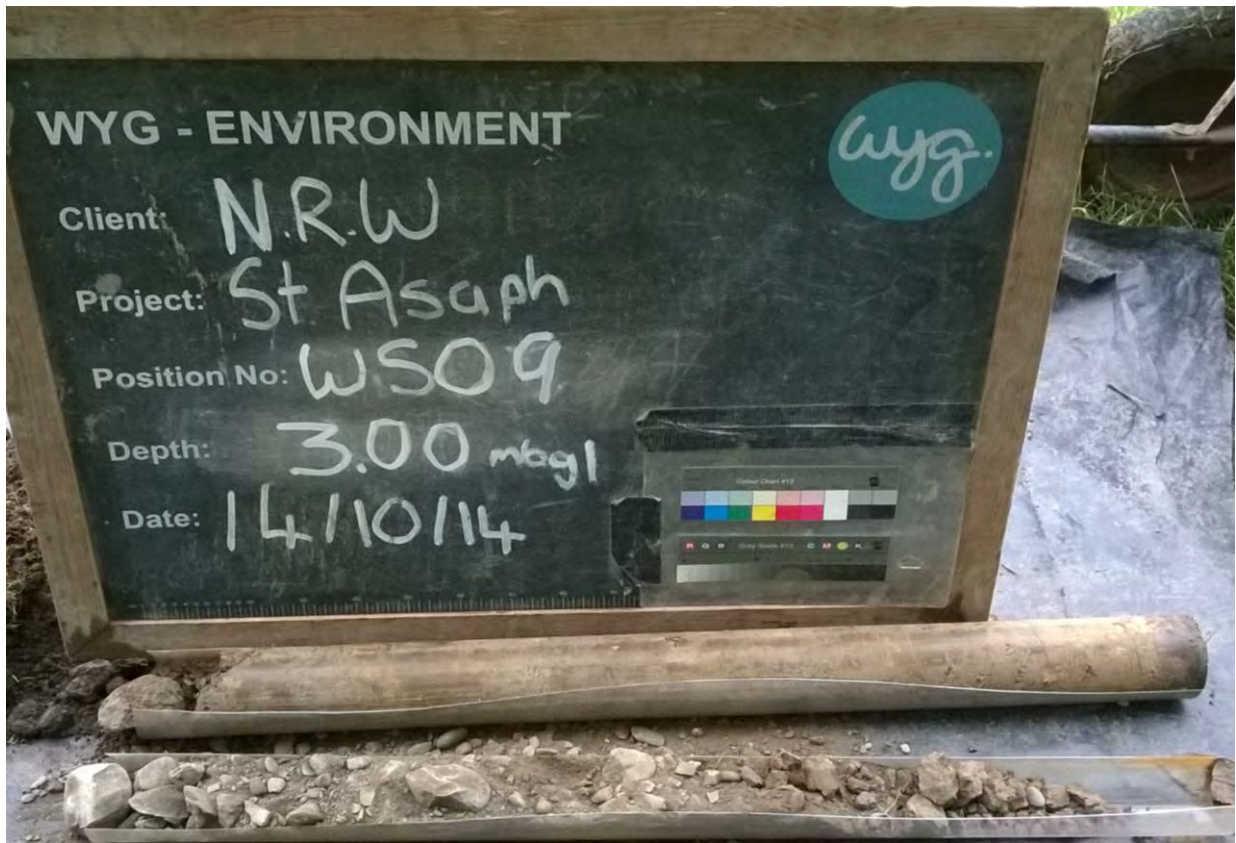 WYG - ENVIRONMENT
wyg.
Client: N.R.W
Project: St Asaph
Position No: WS09
Depth: 3.00 mbgl
Date: 14/10/14
Colour Chart #13
R G B Grey Scale #13 C M Y K